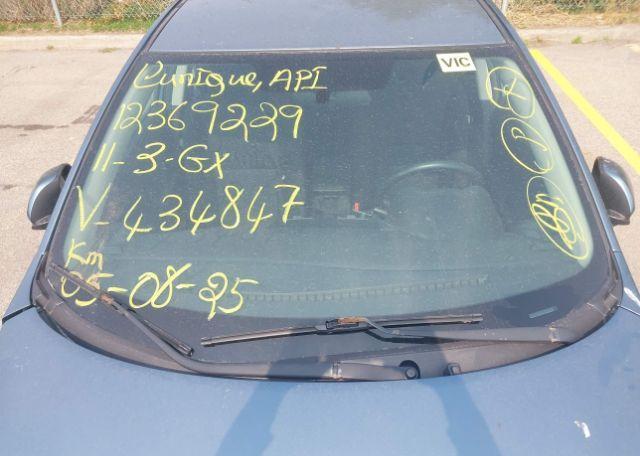 VIC
Cunique, API
12369229
11-3-GX
V-434847
Km
05-08-25
R